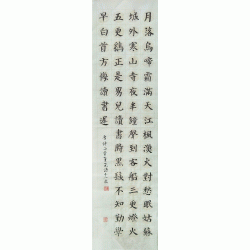 月落烏啼霜滿天江楓漁火對愁眠姑蘇
城外寒山寺夜半鐘聲到客船三更燈火
五更鷄正是男兒讀書時黑髮不知勤學
早白首方悔讀書遲